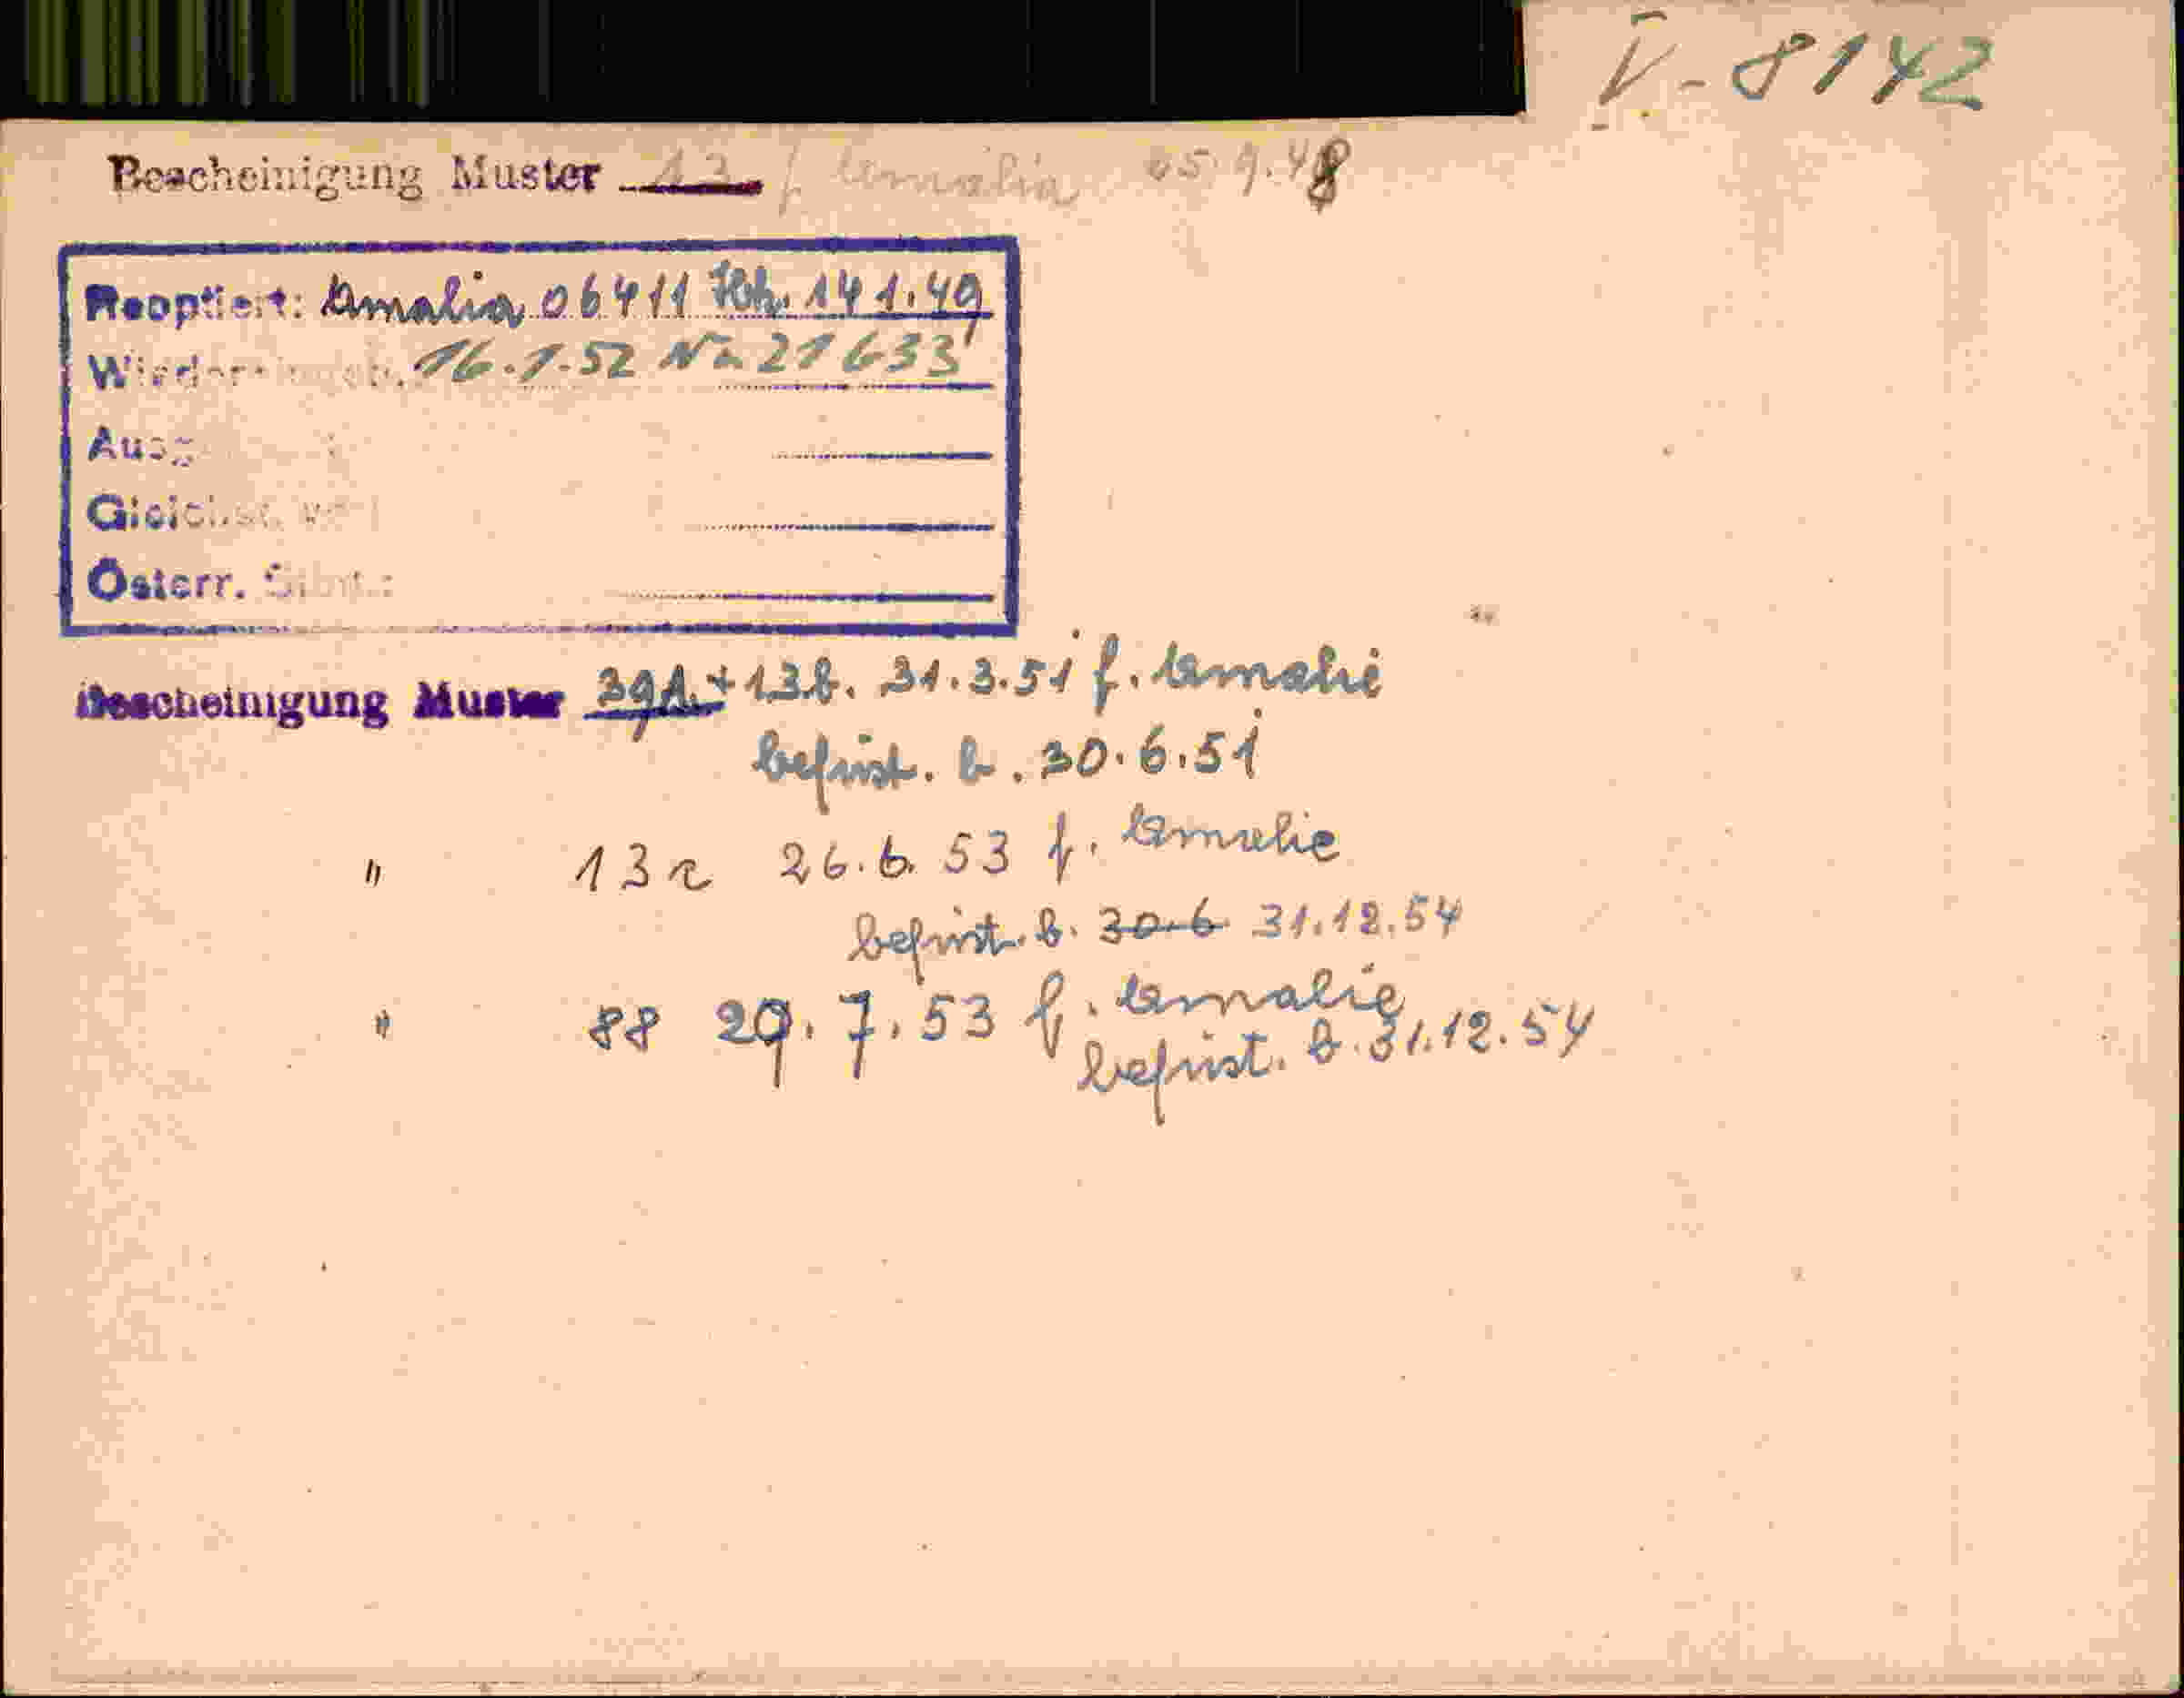 V-8142
Bescheinigung Muster 13 f. Amalia 5.9.48
Reoptiert: Amalia 06411 14.1.49
16.1.52 Nr. 21633
Österr.
Bescheinigung Muster 39A. + 13b. 31.3.51 f. Amalie
befrist. b. 30.6.51
" 13a 26.6.53 f. Amalie
befrist. b. 30.6. 31.12.54
" 88 29.7.53 f. Amalie
befrist. b. 31.12.54